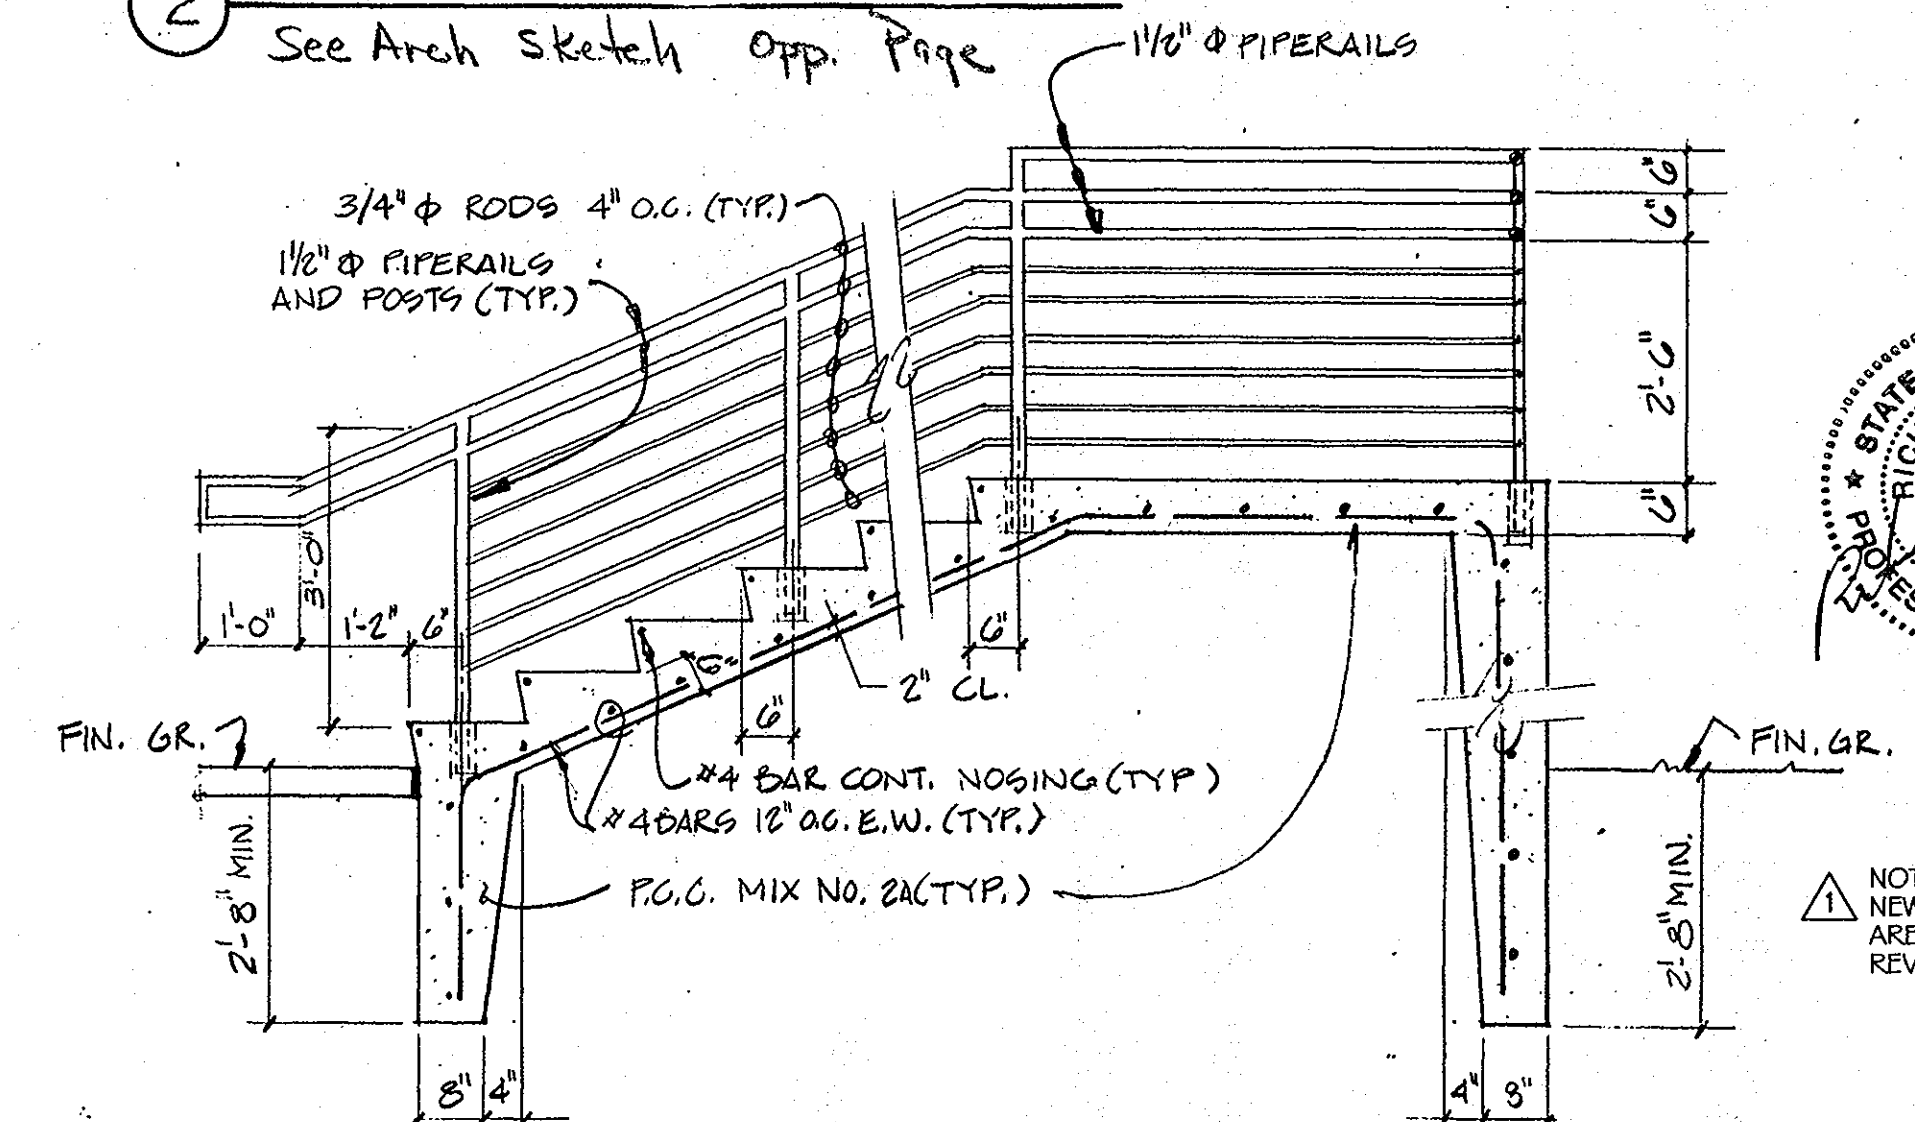 2
See Arch Sketch Opp. Page
1 1/2" Φ PIPERAILS
3/4" Φ RODS 4" O.C. (TYP.)
1 1/2" Φ PIPERAILS
AND POSTS (TYP.)
6"
6"
2'-6"
6"
3'-0"
1'-0"
1'-2"
6"
6"
6"
6"
2" CL.
FIN. GR.
FIN. GR.
#4 BAR CONT. NOSING (TYP)
#4 BARS 12" O.C. E.W. (TYP.)
P.C.C. MIX NO. 2A (TYP.)
2'-8" MIN.
2'-8" MIN.
8"
4"
4"
8"
STATE
PROFES
RIC
1
NOT
NEW
ARE
REV